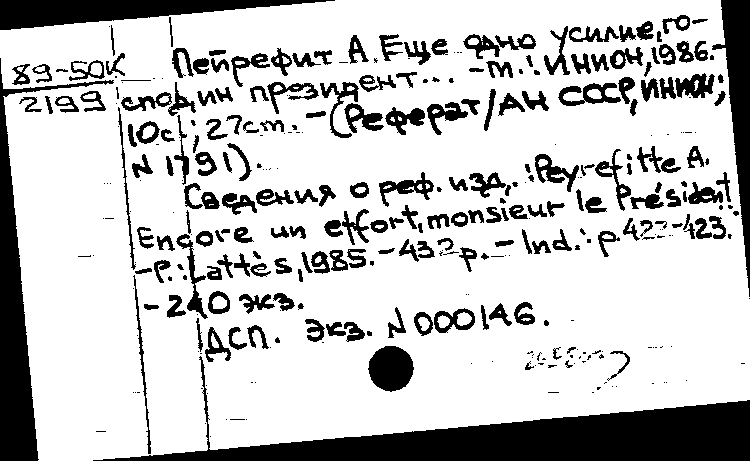 89-50К
2199
Пейрефит А. Еще одно усилие, го-
сподин президент... - М.: ИНИОН, 1986.-
10с.; 27cm. - (Реферат/АН СССР, ИНИОН;
N 1791).
Сведения о реф. изд.: Peyrefitte A.
Encore un effort, monsieur le Président!
-P.: Lattès, 1985. - 432 p. - Ind.: p. 422-423.
- 240 экз.
ДСП. Экз. N 000146.